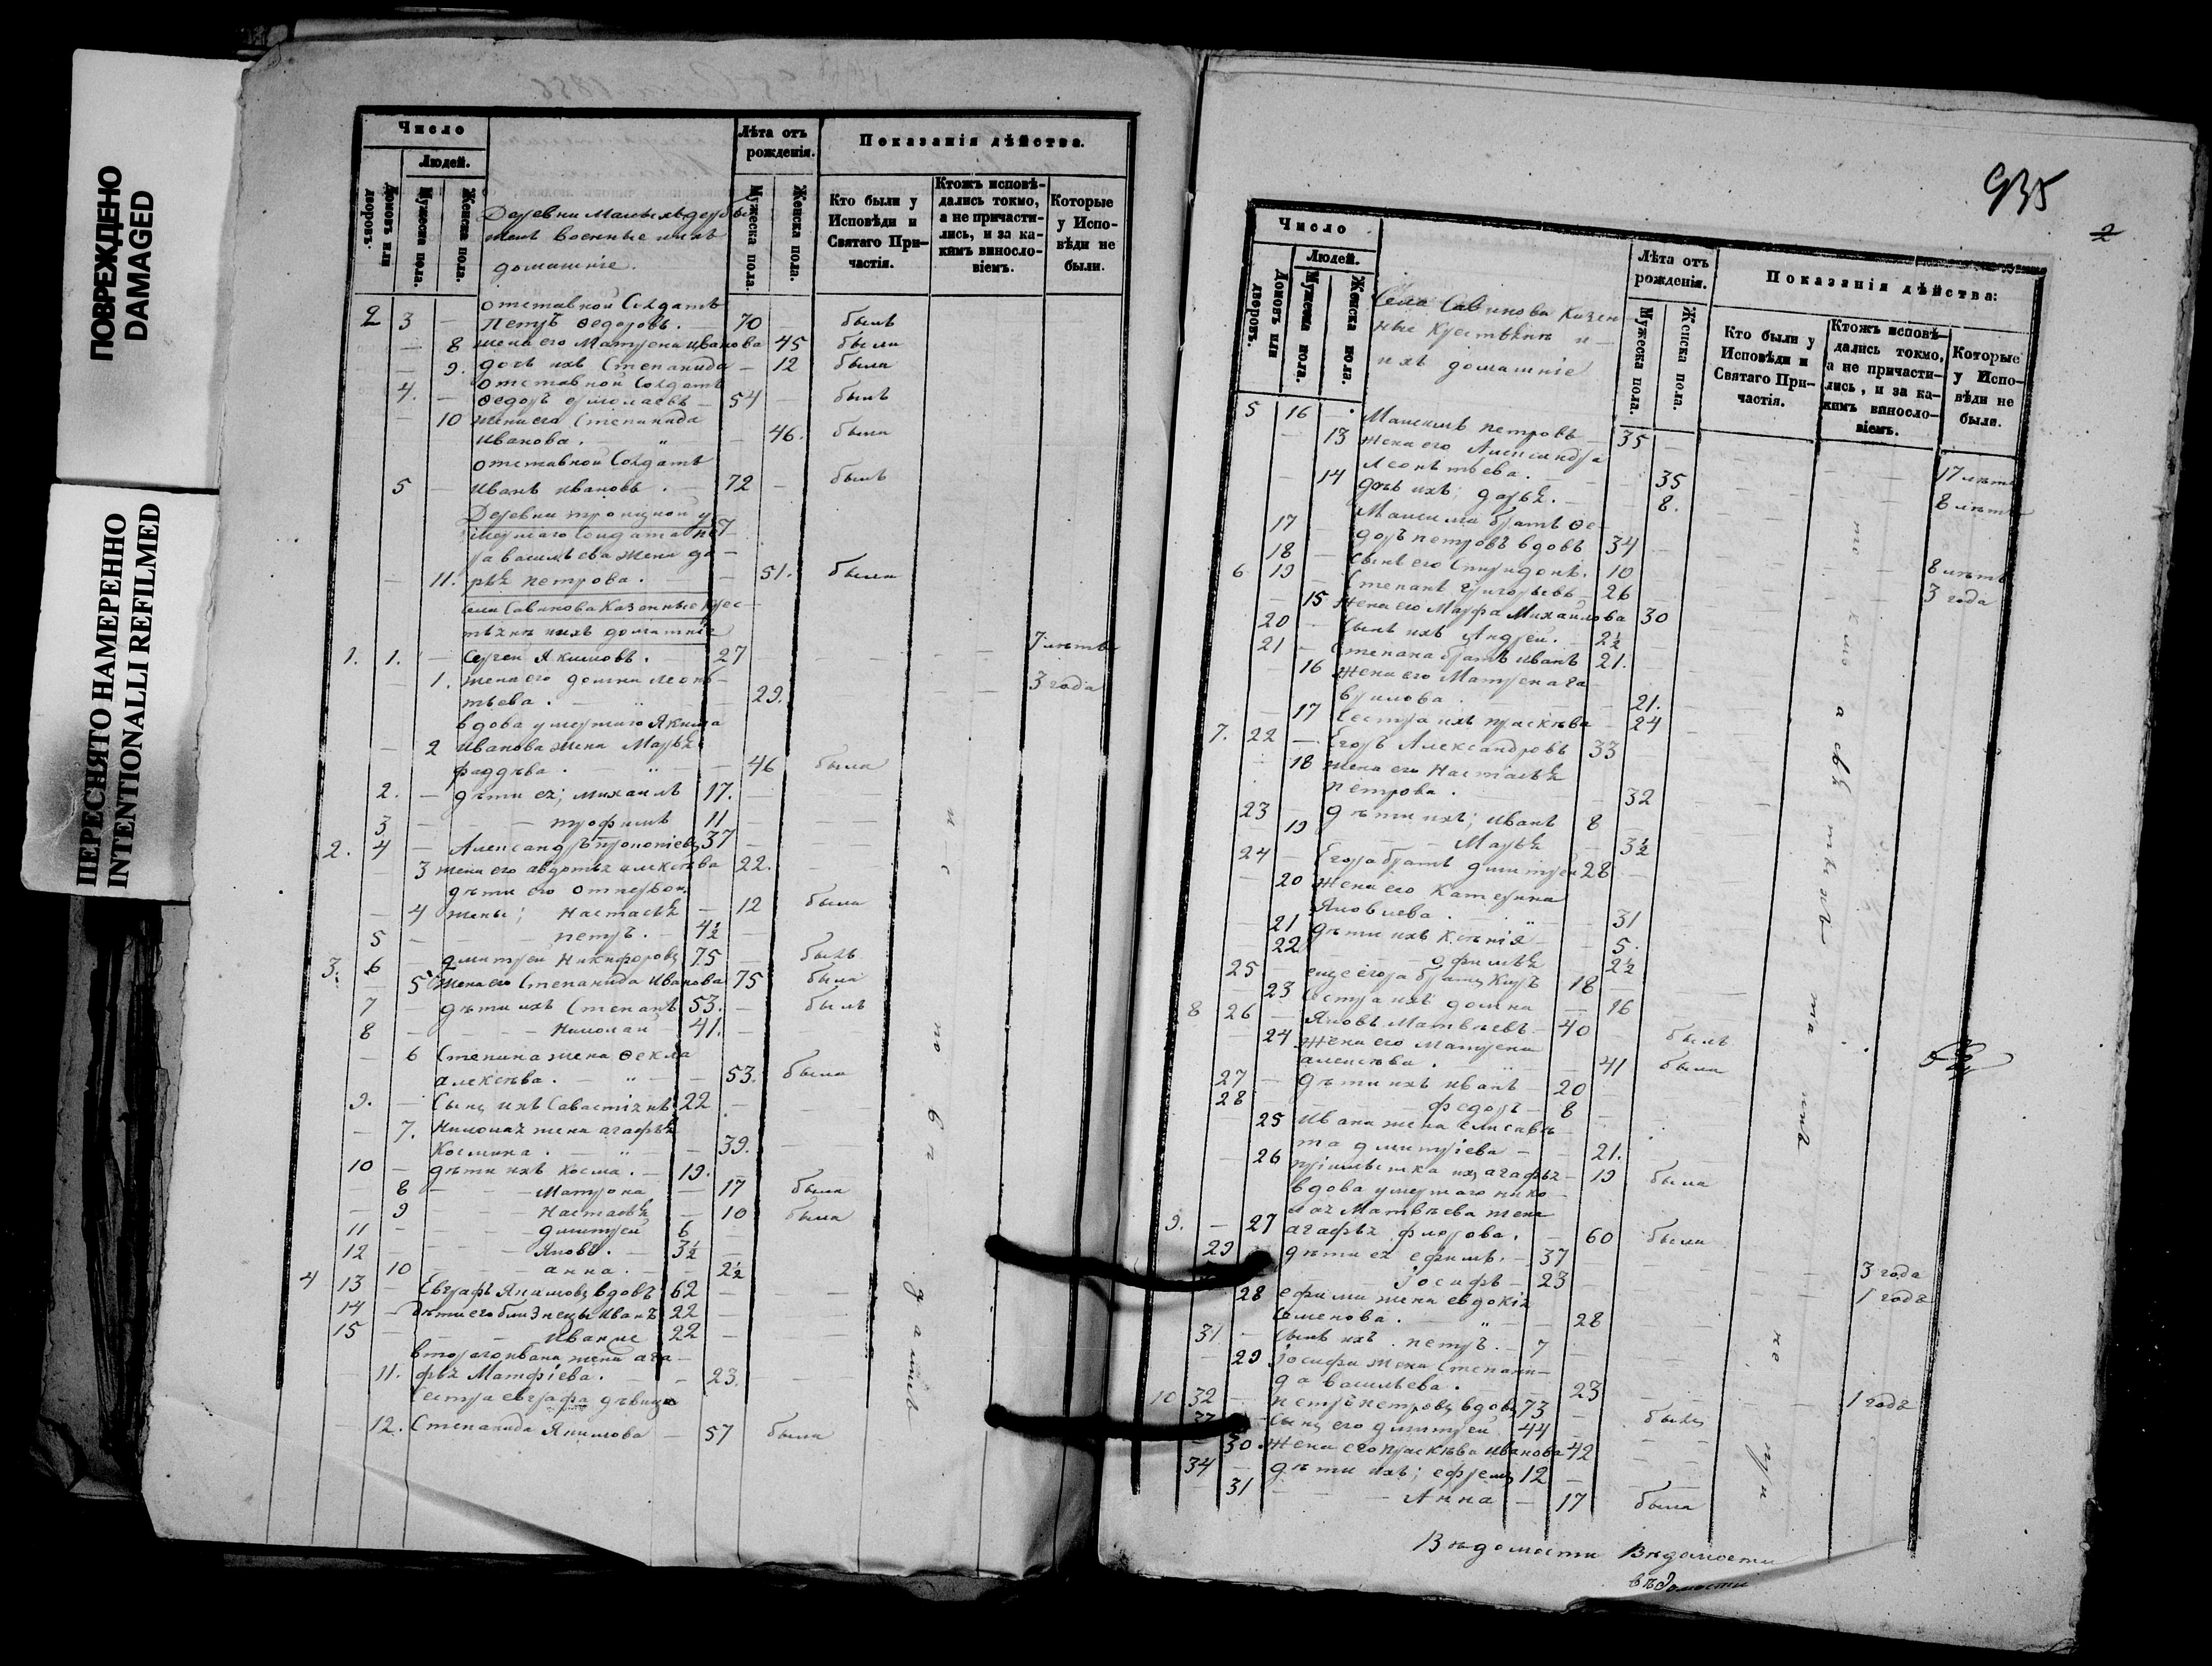 ПОВРЕЖДЕНО
DAMAGED
ПЕРЕСНЯТО НАМЕРЕННО
INTENTIONALLI REFILMED
Число
Людей.
Домовъ или дворовъ.
Мужеска пола.
Женска пола.
Деревни
военные ихъ
домашніе.
Лѣта отъ рожденія.
Мужеска пола.
Женска пола.
Показанія дѣйства.
Кто были у Исповѣди и Святаго Причастія.
Ктожъ исповѣдались токмо, а не причастились, и за какимъ винословіемъ.
Которые у Исповѣди не были.
отставной Солдатъ
2 3 — Петръ Ѳедоровъ. — 70 — былъ
— 8 жена его Матрена иванова 45 была
— 9. дочь ихъ Степанида — 12 была
отставной Солдатъ
4. — Ѳедоръ ермолаевъ — 54 — былъ
— 10 жена его Степанида
иванова. — „ — 46. была
отставной Солдатъ
5 — иванъ ивановъ. — 72 — былъ
Деревни троицкой у
мершаго Солдата пет
ра васильева жена да —
— 11. рьѧ петрова. — — 51. была
села Савинова Казенные крес —
тьяне ихъ домашніе
1. 1. — Сергеи Якимовъ. — 27 — — — 7 лѣтъ
— 1. жена его домна леонъ —
тьева. — „ — 29. — — 3 года
вдова умершаго Якима
— 2 иванова жена Марьѧ
фаддѣва. — „ — — 46 была
2. — дѣти ея; михаилъ 17. —
3 — — — трофимъ 11 —
2. 4 — Александръ прокопіевъ 37 —
— 3 жена его авдотья алексѣва 22.
дѣти его от первой
— 4 жены; Настасьѧ — 12 была
5 — — — петръ. — 4½ —
3. 6 — дмитреи Никифоровъ 75 — былъ
— 5 жена его Степанида Иванова 75 была
7 — дѣти ихъ Степанъ 53. — былъ
8 — — — Николаи — 41. —
— 6 Степана жена Ѳекла
алексѣва. — „ — 53. была
9. — Сынъ ихъ Савастіянъ 22 —
— 7. Николая жена агафьѧ
Космина. — „ — 39. —
10 — дѣти ихъ косма. — 19. —
— 8 — — — Матрона — 17 была
— 9 — — — Настасьѧ — 10 была
11 — — — дмитреи 6
12 — — — Яковъ. — 3½ —
— 10 — — анна. — — 2½
4 13 — Евграфъ Якимовъ вдовъ 62 —
14 — дѣти его близнецы Иванъ 22 —
15 — — — Иванже 22 —
второго ивана жена ага —
— 11. фьѧ Матфіева. — — 23.
Сестра евграфа дѣвица
— 12. Степанида Якимова — 57 была
исповѣдатис
935
2
Число
Людей.
Домовъ или дворовъ.
Мужеска пола.
Женска пола.
Села Савинова Казен
ные крестьяне и —
ихъ домашніе
Лѣта отъ рожденія.
Мужеска пола.
Женска пола.
Показанія дѣйства:
Кто были у Исповѣди и Святаго Причастія.
Ктожъ исповѣдались токмо, а не причастились, и за какимъ винословіемъ.
Которые у Исповѣди не были.
5 16 — Максимъ петровъ — 35 —
— 13 жена его Александра
леонътьева. — — 35 17 лѣтъ
— 14 дочь ихъ; дарьѧ. — — 8. 8 лѣтъ
Максима братъ Ѳе —
17 — доръ петровъ вдовъ 34 —
18 — Сынъ его Спиридонъ. 10 8 лѣтъ
6 19 — Степанъ Григорьевъ — 26 — 3 года
— 15 жена его Марфа Михаилова 30
20 — Сынъ ихъ Андреи. — 2½
21 — Степана братъ иванъ 21.
— 16 жена его Матрена га
врилова. — — 21.
— 17 Сестра ихъ праскѣва — 24
7. 22 — Егоръ Александровъ 33
— 18 жена его Настасьѧ
петрова. — 32
23 — дѣти ихъ; иванъ 8
— 19 — — Марьѧ — 3½
24 — Егора братъ дмитреи 28
— 20 жена его Катерина
Яковлева. — „ — 31
— 21 дѣти ихъ Ксѣнія — 5.
— 22 — — ефимьѧ 2½
25 — еще егора братъ Киръ 18
— 23 Сестра ихъ домна — 16
8 26 — Яковъ Матвѣевъ — 40 былъ
— 24 жена его матрена
алексѣва. — „ — 41 была
27 — дѣти ихъ иванъ — 20
28 — — — федоръ — 8
— 25 Ивана жена Елисавѣ —
та дмитріева — 21.
— 26 ихъ агафья — 19 была
вдова умершаго нико —
лая Матвѣева жена
9. — 27 агафья флорова. — 60 была
29 — дѣти ея ефимъ. — 37 3 года
— Iосифъ — 23 1 годъ
— 28 ефима жена евдокія
Семенова. — „ — 28
31 — Сынъ ихъ петръ. — 7
— 29 Iосифа жена Степани —
да васильева. — 23
10 32 — петръ петровъ вдовъ 73 — 1 годъ
33 — Сынъ его дмитреи 44 — былъ
— 30 жена его праскѣва иванова 42
34 — дѣти ихъ; ефремъ 12 —
— 31 — — Анна — 17 была
Вѣдомости Вѣдомости
вѣдомости